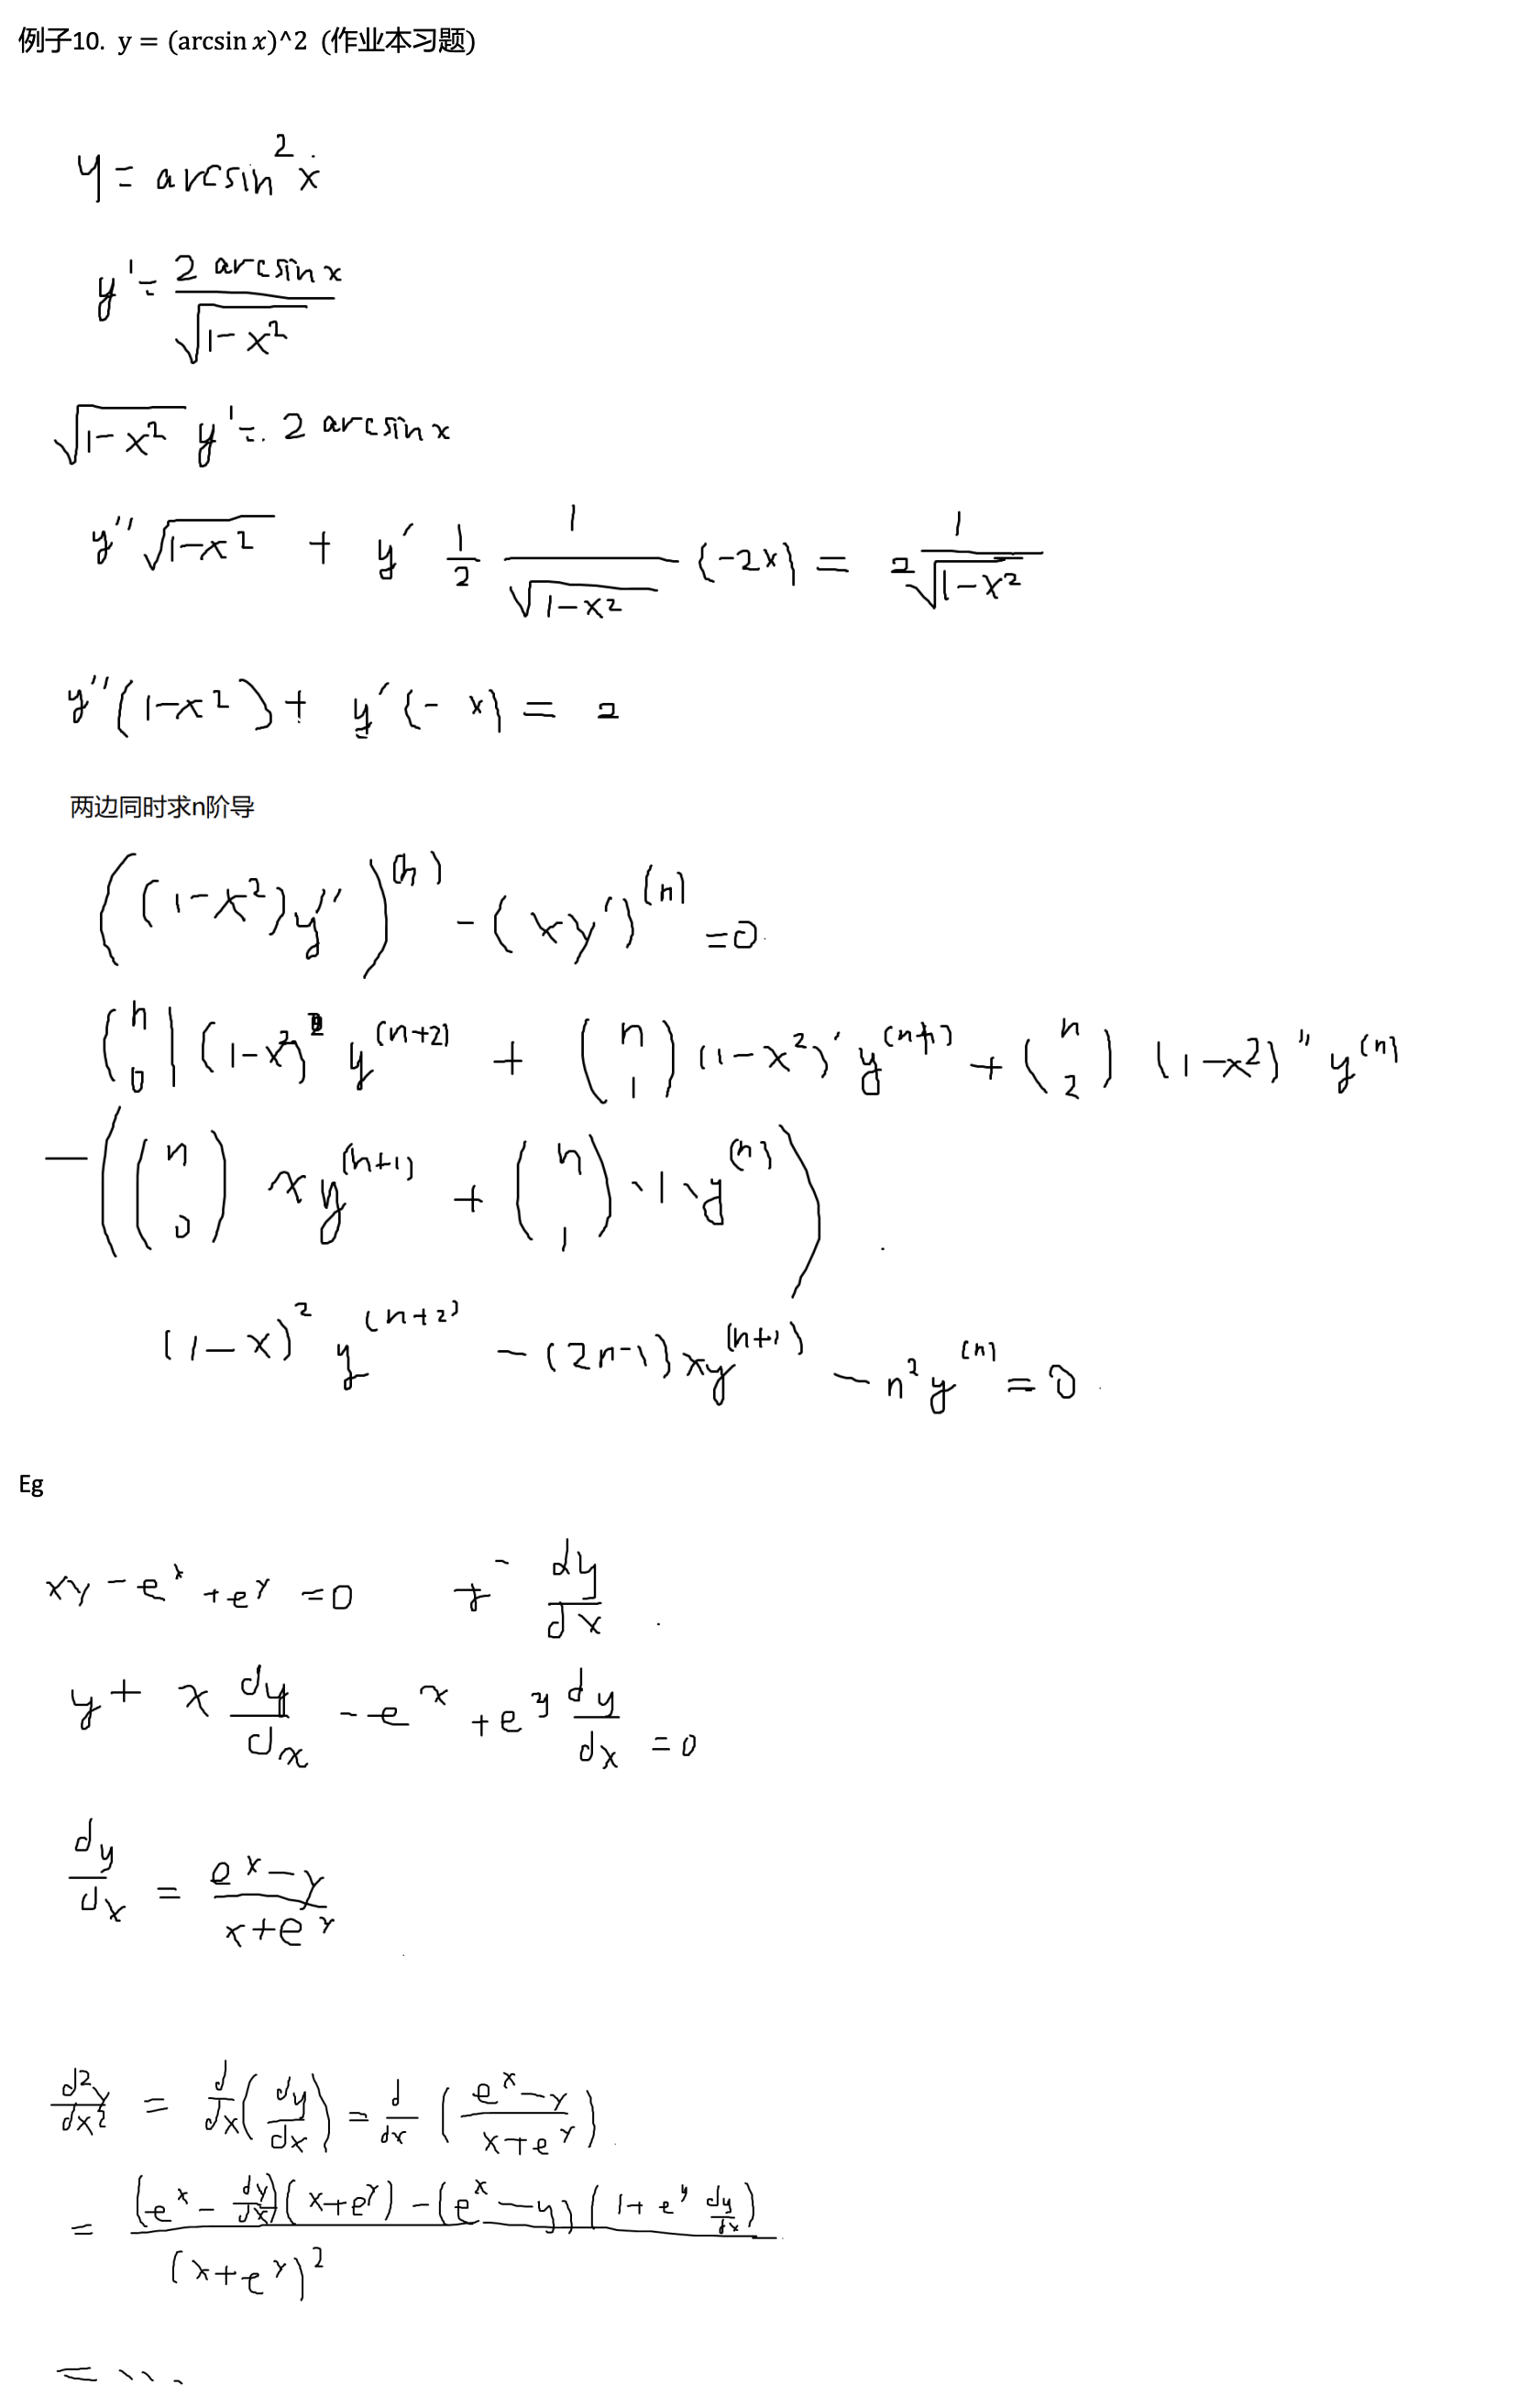 例子10. y = (arcsin x)^2 (作业本习题)
y = arcsin²x
y' = 2 arcsin x / √(1-x²)
√(1-x²) y' = 2 arcsin x
y'' √(1-x²) + y' 1/2 1/√(1-x²) (-2x) = 2 1/√(1-x²)
y''(1-x²) + y'(-x) = 2
两边同时求n阶导
((1-x²)y'')^(n) - (xy')^(n) = 0
(n 0)(1-x²) y^(n+2) + (n 1)(1-x²)' y^(n+1) + (n 2)(1-x²)'' y^(n)
- ((n 0) x y^(n+1) + (n 1)·1·y^(n))
(1-x)² y^(n+2) - (2n-1)xy^(n+1) - n²y^(n) = 0
Eg
xy - e^x + e^y = 0 dy/dx
y + x dy/dx - e^x + e^y dy/dx = 0
dy/dx = (e^x - y)/(x + e^y)
d²y/dx² = d/dx (dy/dx) = d/dx ((e^x - y)/(x + e^y))
= ((e^x - dy/dx)(x+e^y) - (e^x - y)(1 + e^y dy/dx))/(x+e^y)²
= ...